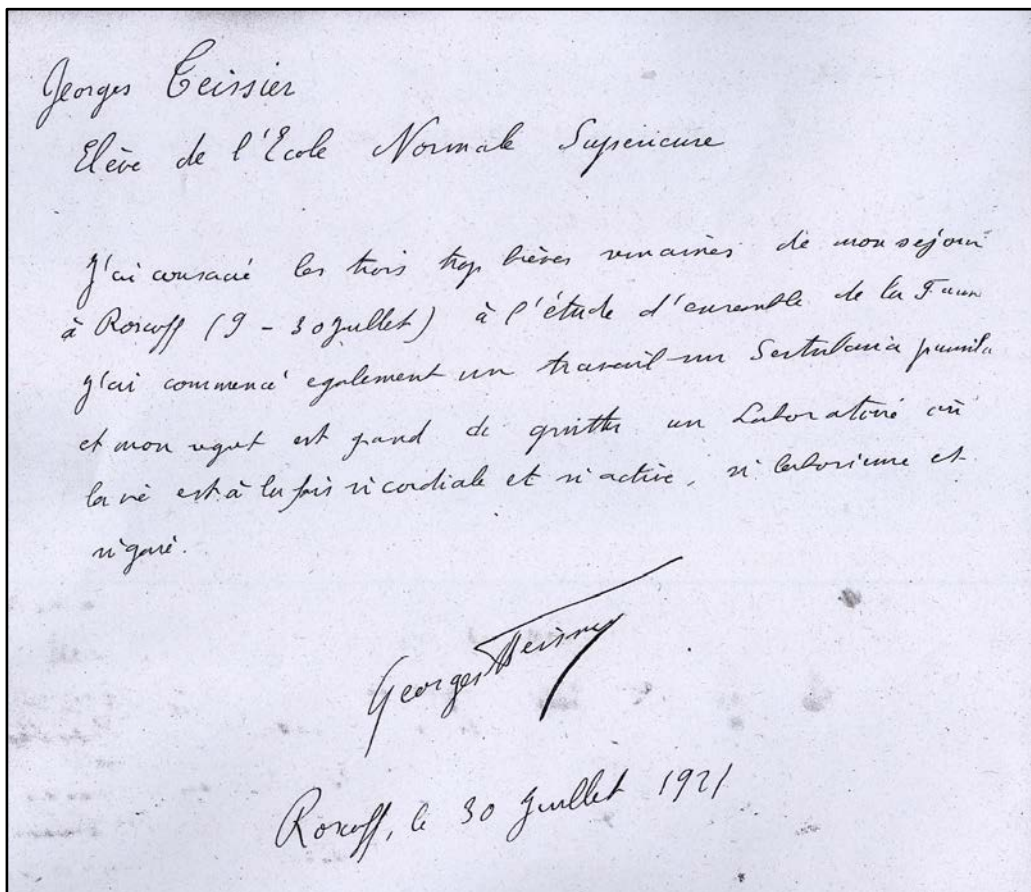 Georges Teissier
Elève de l'Ecole Normale Supérieure
J'ai consacré les trois trop brèves semaines de mon séjour
à Roscoff (9 - 30 Juillet) à l'étude d'ensemble de la Faune
J'ai commencé egalement un travail sur Sertularia pumila
et mon regret est grand de quitter un Laboratoire où
la vie est à la fois si cordiale et si active, si laborieuse et
si gaie.
Georges Teissier
Roscoff, le 30 Juillet 1921